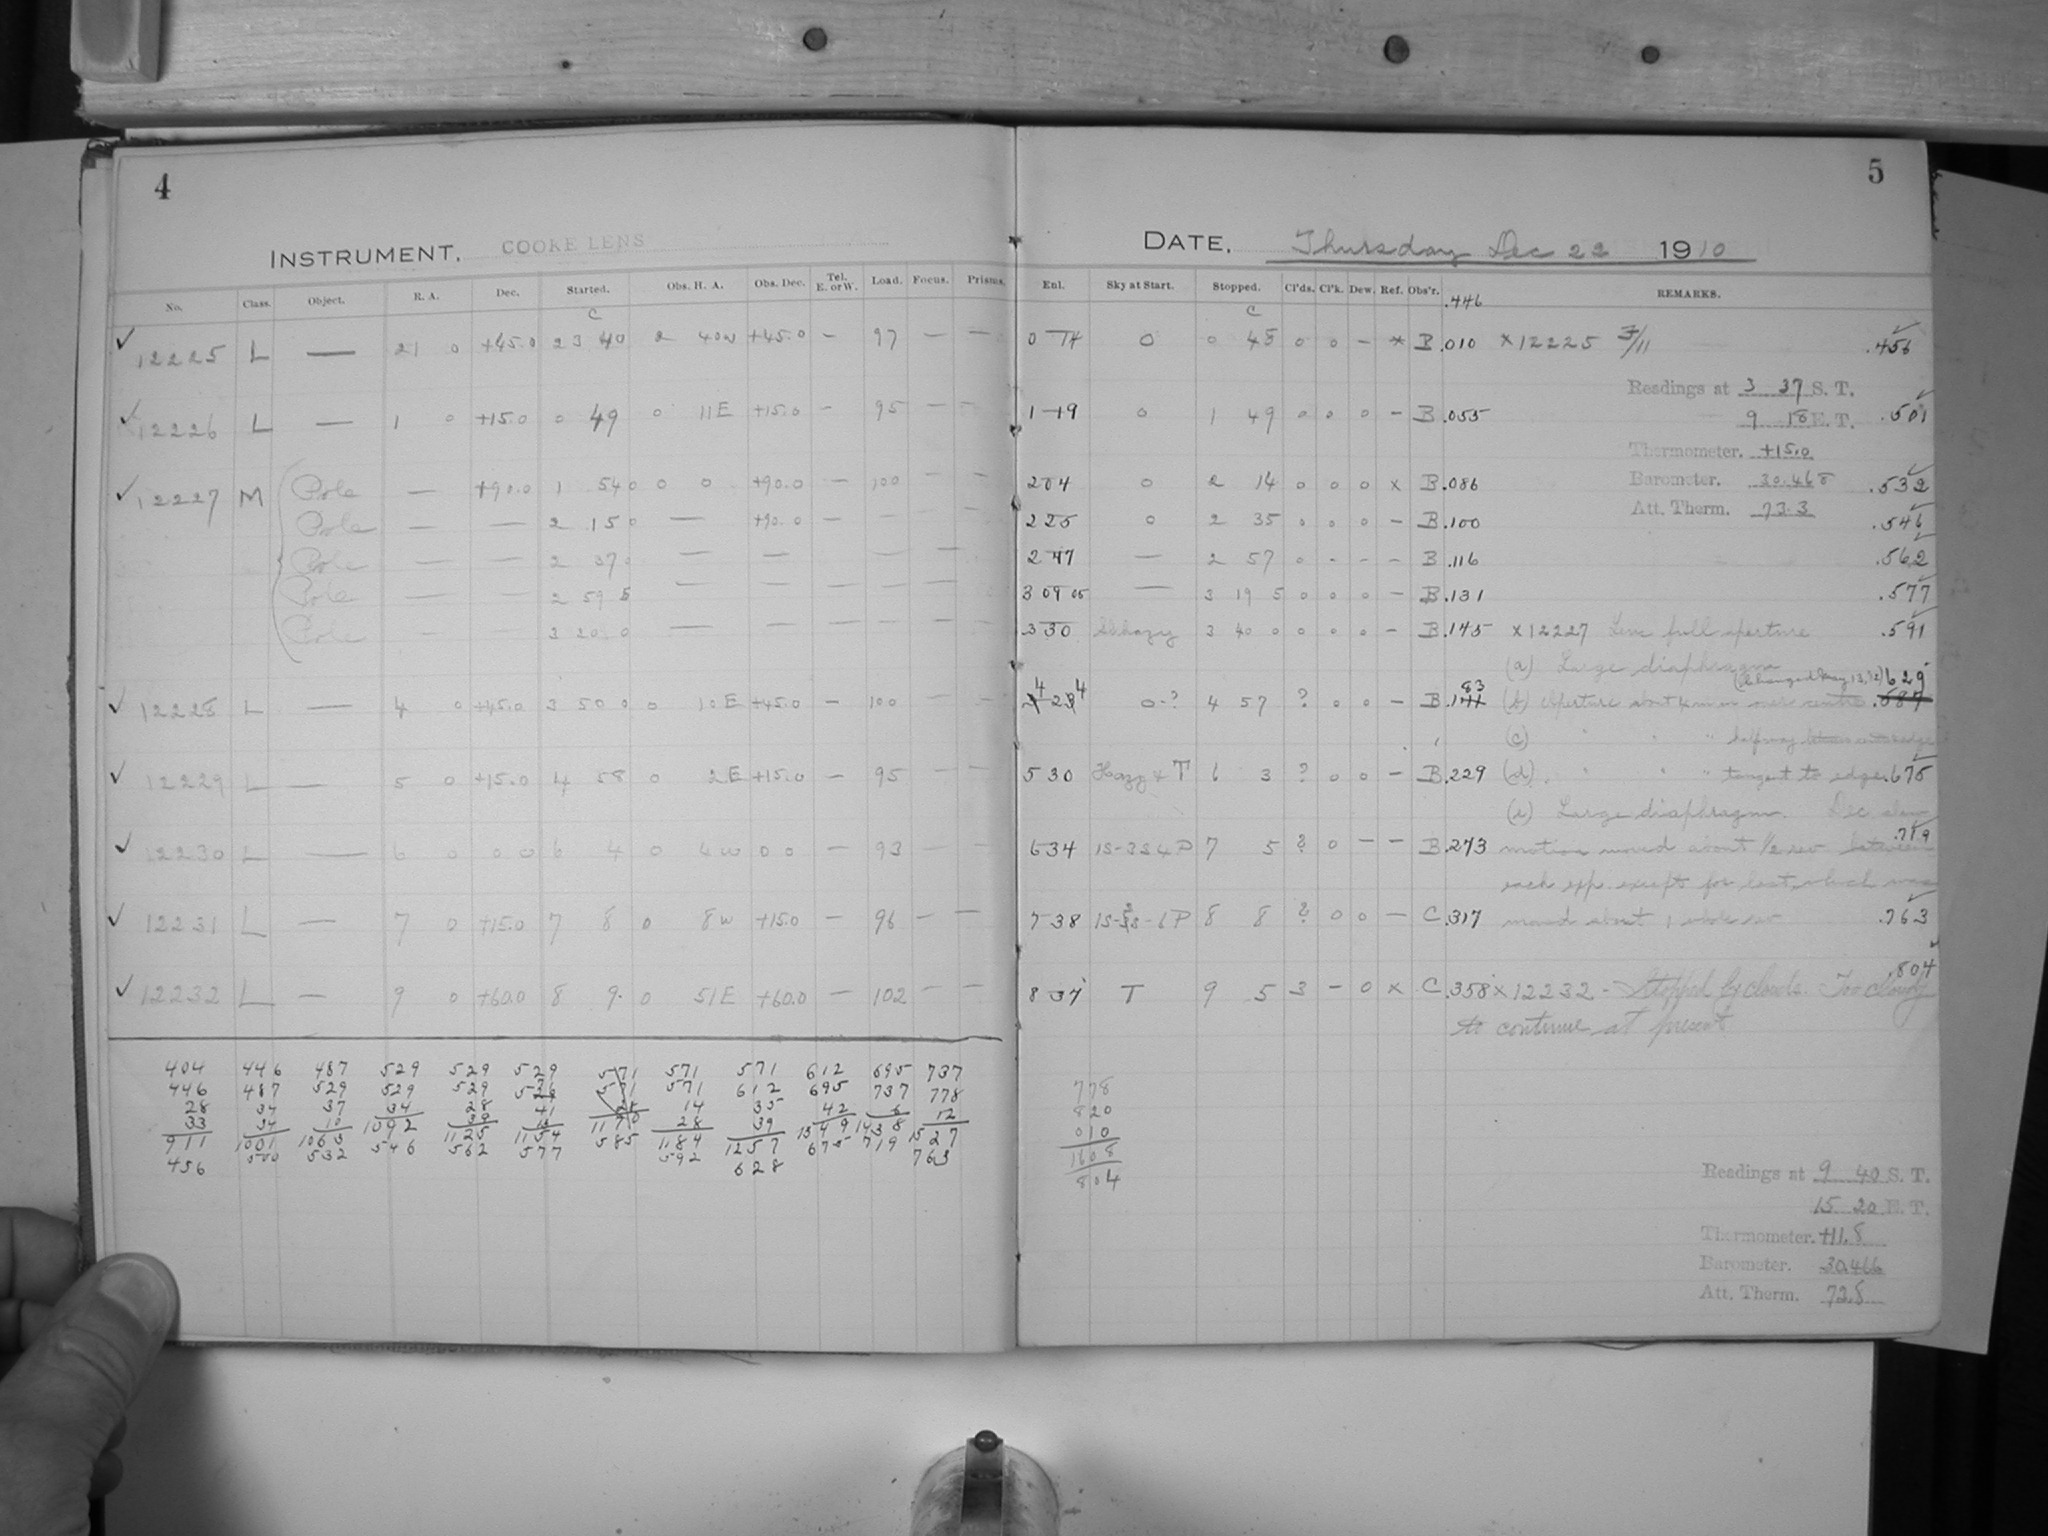 4
INSTRUMENT. COOKE LENS
No. Class. Object. R. A. Dec. Started. Obs. H. A. Obs. Dec. Tel. E. or W. Load. Focus. Prisms.
C
12225 L — 21 0 +45.0 23 40 2 40W +45.0 — 97 — —
12226 L — 1 0 +15.0 0 49 0 11E +15.0 — 95 — —
12227 M Pole — +90.0 1 54 0 0 0 +90.0 — 100 — —
Pole — — 2 15 0 — +90.0 — — — —
Pole — — 2 37 0 — — — — —
Pole — — 2 59 5 — — — — — —
Pole — — 3 20 0 — — — — — —
12228 L — 4 0 +45.0 3 50 0 0 10E +45.0 — 100 — —
12229 L — 5 0 +15.0 4 58 0 2E +15.0 — 95 — —
12230 L — 6 0 0 0 6 4 0 4W 0 0 — 93 — —
12231 L — 7 0 +15.0 7 8 0 8W +15.0 — 96 — —
12232 L — 9 0 +60.0 8 9 0 51E +60.0 — 102 — —
404 446 487 529 529 529 571 571 571 612 695 737
446 487 529 529 529 529 571 571 612 695 737 778
28 34 37 34 28 41 28 14 35 42 6 12
33 34 10 39
911 1001 1063 1092 1125 1154 1170 1184 1257 1349 1438 1527
456 500 532 546 562 577 585 592 628 675 719 763
5
DATE. Thursday Dec 22 1910
Enl. Sky at Start. Stopped. Cl'ds. Cl'k. Dew. Ref. Obs'r. .446 REMARKS.
C
0 14 0 0 48 0 0 — × B .010 ×12225 3/11 .456
Readings at 3 37 S. T.
1 19 0 1 49 0 0 0 — B .055 .501
9 18 E. T.
Thermometer. +15.0
2 04 0 2 14 0 0 0 × B .086 Barometer. 30.468 .532
Att. Therm. 73.3
2 25 0 2 35 0 0 0 — B .100 .546
2 47 — 2 57 0 - - - B .116 .562
3 09 05 — 3 19 5 0 0 0 — B .131 .577
3 30 Sl. hazy 3 40 0 0 0 0 — B .145 ×12227 Lens full aperture .591
(a) Large diaphragm
(Changed May 13, 12) .629
4 23 4 0-? 4 57 ? 0 0 — B .183 (b) Aperture about 4 mm over centre .587
(c) " " " halfway
5 30 Hazy & T 6 3 ? 0 0 — B .229 (d) " " " tangent to edge .675
(e) Large diaphragm. Dec slow
.719
6 34 1S-3S4P 7 5 ? 0 — — B .273 motion moved about 1/2 rev between
each exp. except for last, which was
7 38 1S-3S-6P 8 8 ? 0 0 — C .317 moved about 1 whole rev .763
.804
8 37 T 9 5 3 — 0 × C .358 ×12232 - Stopped by clouds. Too cloudy
to continue at present
778
820
010
1608
804
Readings at 9 40 S. T.
15 20 E. T.
Thermometer. +11.8
Barometer. 30.466
Att. Therm. 72.8